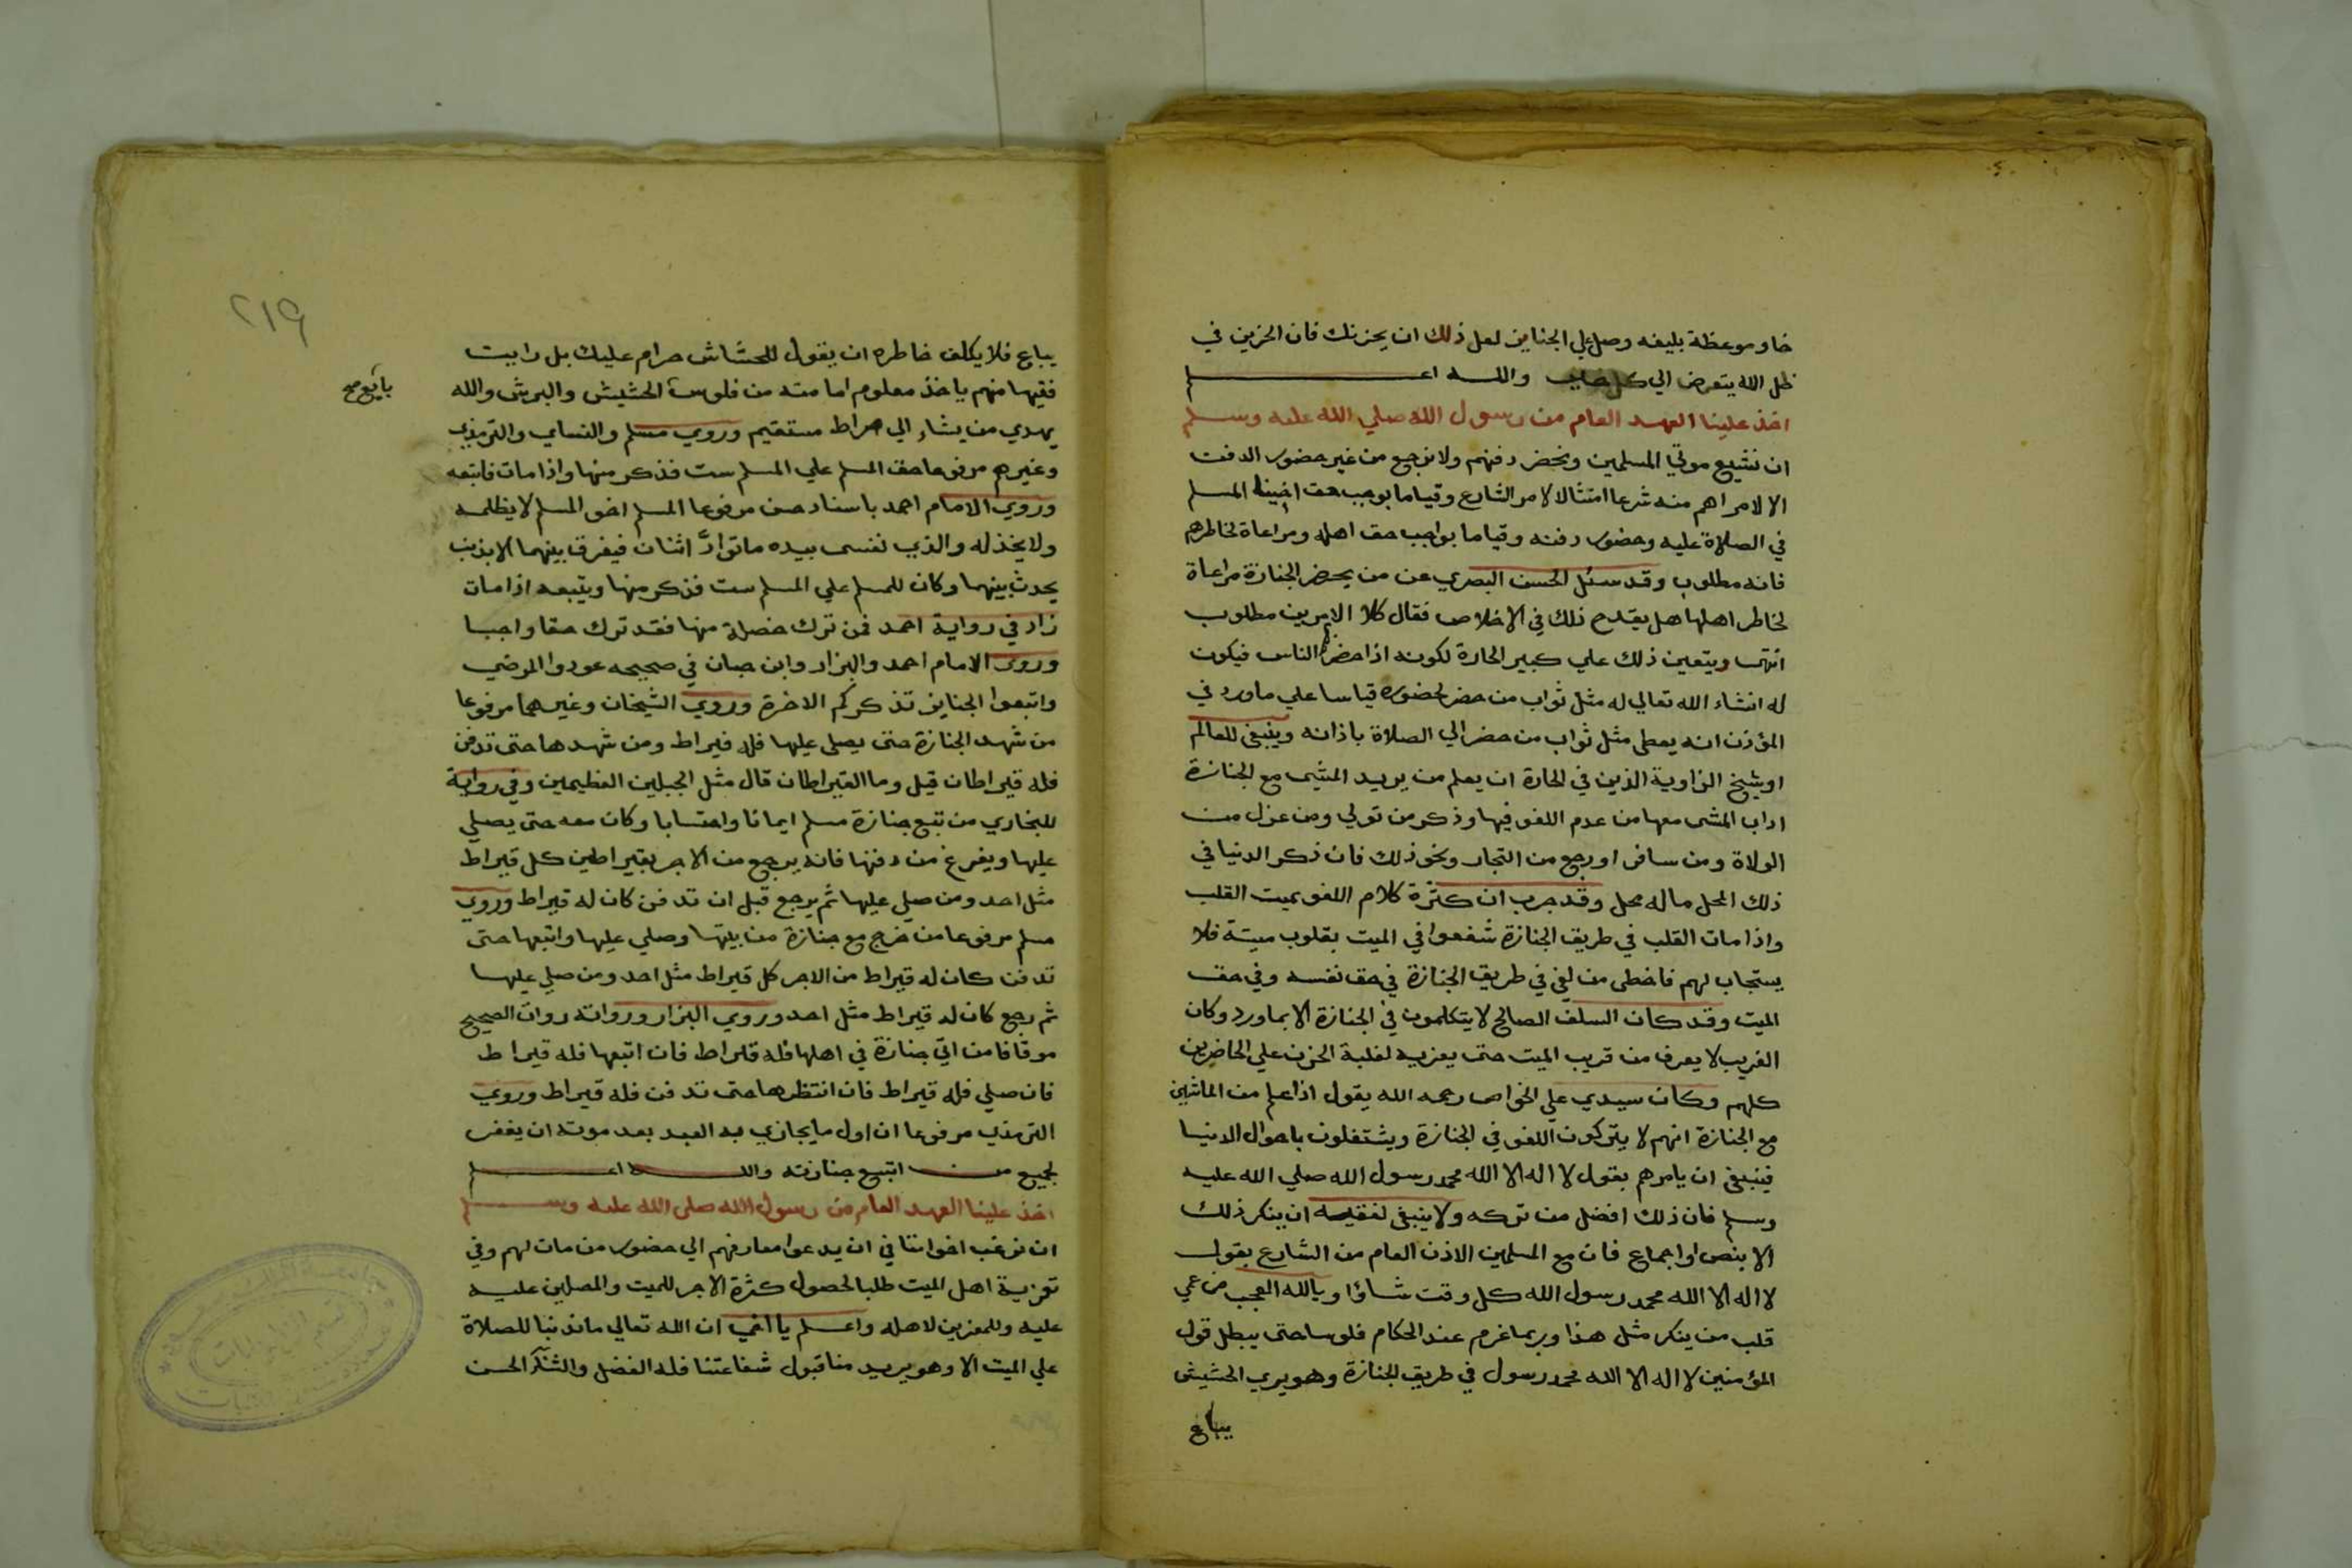 خاو موعظة بليغه وصل علي الجنايز لعل ذلك ان يحزنك فان الحزين في
ظل الله يتعرض الي كل خير والله اعلم
اخذ علينا العهد العام من رسول الله صلي الله عليه وسلم
ان نشيع موتي المسلمين ونحضر دفنهم ولا نرجع من غير حضور الدفن
الا لامر اهم منه شرعا امتثالا لامر الشارع وقياما بوجب حق اخينا المسلم
في الصلاة عليه وحضور دفنه وقياما بواجب حق اهله ومراعاة لخاطرهم
فانه مطلوب وقد سئل الحسن البصري عن من يحضر الجنازة مراعاة
لخاطر اهلها هل يقدح ذلك في الاخلاص فقال كلا الامرين مطلوب
انتهى ويتعين ذلك علي كبير الحارة لكونه اذا حضر الناس فيكون
له انشاء الله تعالي له مثل ثواب من حضر لحضوره قياسا علي ماورد في
المؤذن انه يعطى مثل ثواب من حضر الي الصلاة باذانه وينبغي للعالم
او شيخ الزاوية الذين في الحارة ان يعلم من يريد المشى مع الجنازة
اداب المشى معها من عدم اللغو فيها وذكر من تولي ومن عزل من
الولاة ومن سافر او رجع من التجار ونحو ذلك فان ذكر الدنيا في
ذلك المحل ماله محل وقد جرب ان كثرة كلام اللغو يميت القلب
واذا مات القلب في طريق الجنازة شفعوا في الميت بقلوب ميتة فلا
يستجاب لهم فاخطى من لغي في طريق الجنازة في حق نفسه وفي حق
الميت وقد كان السلف الصالح لا يتكلمون في الجنازة الا بماورد وكان
الغريب لا يعرف من قريب الميت حتى يعزيه لغلبة الحزن علي الحاضرين
كلهم وكان سيدي علي الخواص رحمه الله يقول اذا علم من الماشين
مع الجنازة انهم لا يتركون اللغو في الجنازة ويشتغلون باحوال الدنيا
فينبغي ان يامرهم بقول لا اله الا الله محمد رسول الله صلي الله عليه
وسلم فان ذلك افضل من تركه ولا ينبغي لفقيه ان ينكر ذلك
الا بنص او اجماع فان مع المسلمين الاذن العام من الشارع بقول
لا اله الا الله محمد رسول الله كل وقت شاؤا ويالله العجب من عمي
قلب من ينكر مثل هذا وربما غرم عند الحكام فلوسا حتى يبطل قول
المؤمنين لا اله الا الله محمد رسول في طريق الجنازة وهو يري الحشيش
يباع
٢١٩
يباع فلا يكلف خاطره ان يقول للحشاش حرام عليك بل رايت
فقيها منهم ياخذ معلوم امامته من فلوس الحشيش والبرش والله
يهدي من يشاء الي صراط مستقيم وروي مسلم والنساي والترمذي
وغيرهم مرفوعا حق المسلم علي المسلم ست فذكر منها واذا مات فاتبعه
وروي الامام احمد باسناد حسن مرفوعا المسلم اخو المسلم لا يظلمه
ولا يخذله والذي نفسي بيده ما توادَّ اثنان فيفرق بينهما الا بذنب
يحدث بينهما وكان للمسلم علي المسلم ست فذكر منها ويتبعه اذا مات
زاد في رواية احمد فمن ترك خصلة منها فقد ترك حقا واجبا
وروي الامام احمد والبزار وابن حبان في صحيحه عودوا المرضي
واتبعوا الجنايز تذكركم الاخرة وروي الشيخان وغيرهما مرفوعا
من شهد الجنازة حتى يصلي عليها فله قيراط ومن شهدها حتى تدفن
فله قيراطان قيل وما القيراطان قال مثل الجبلين العظيمين وفي رواية
للبخاري من تبع جنازة مسلم ايمانا واحتسابا وكان معه حتى يصلي
عليها ويفرغ من دفنها فانه يرجع من الاجر بقيراطين كل قيراط
مثل احد ومن صلي عليها ثم يرجع قبل ان تدفن كان له قيراط وروي
مسلم مرفوعا من خرج مع جنازة من بيتها وصلي عليها واتبعها حتى
تدفن كان له قيراط من الاجر كل قيراط مثل احد ومن صلي عليها
ثم رجع كان له قيراط مثل احد وروي البزار ورواته روات الصحيح
موقافا من اتي جنازة في اهلها فله قيراط فان اتبعها فله قيراط
فان صلي فله قيراط فان انتظرها حتى تدفن فله قيراط وروي
الترمذي مرفوعا ان اول ما يجازي به العبد بعد موته ان يغفر
لجميع من اتبع جنازته والله اعلم
اخذ علينا العهد العام من رسول الله صلي الله عليه وسلم
ان نرغب اخواننا في ان يدعوا معارفهم الي حضور من مات لهم وفي
تعزية اهل الميت طلبا لحصول كثرة الاجر للميت والمصلين عليه
عليه وللمعزين لاهله واعلم يا اخي ان الله تعالي ما ندبنا للصلاة
علي الميت الا وهو يريد منا قبول شفاعتنا فله الفضل والثناء الحسن